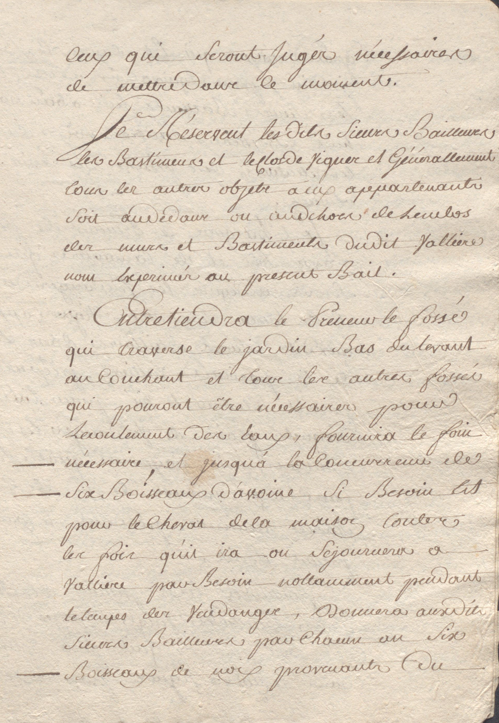 ceux qui seront Jugér nécessaires
de mettre dans le moment.
Se Réservent les dits sieurs Bailleurs
les Bastimens et le clos de vigner et Générallement
tous les autres objets à eux appartenants
soit audedans ou audehors de Lenclos
des murs et Bastiments dudit Vallière
non Exprimés au present Bail.
Entretiendra le Preneur le fossé
qui traverse le jardin Bas du levant
au Couchant et tous les autres fossés
qui pouront être nécessaires pour
Lecoulement des Eaux, fournira le foin
nécessaire, et jusquà la Concurrence de
Six Boisseaux d'avoine si Besoin Est
pour le Cheval de la maison toutes
les fois quil ira ou Séjournera a
Vallière par Besoin nottamment pendant
le temps des Vendanges, Donnera auxdits
Sieurs Bailleurs par Chacun an Six
Boisseaux de noix provenants du